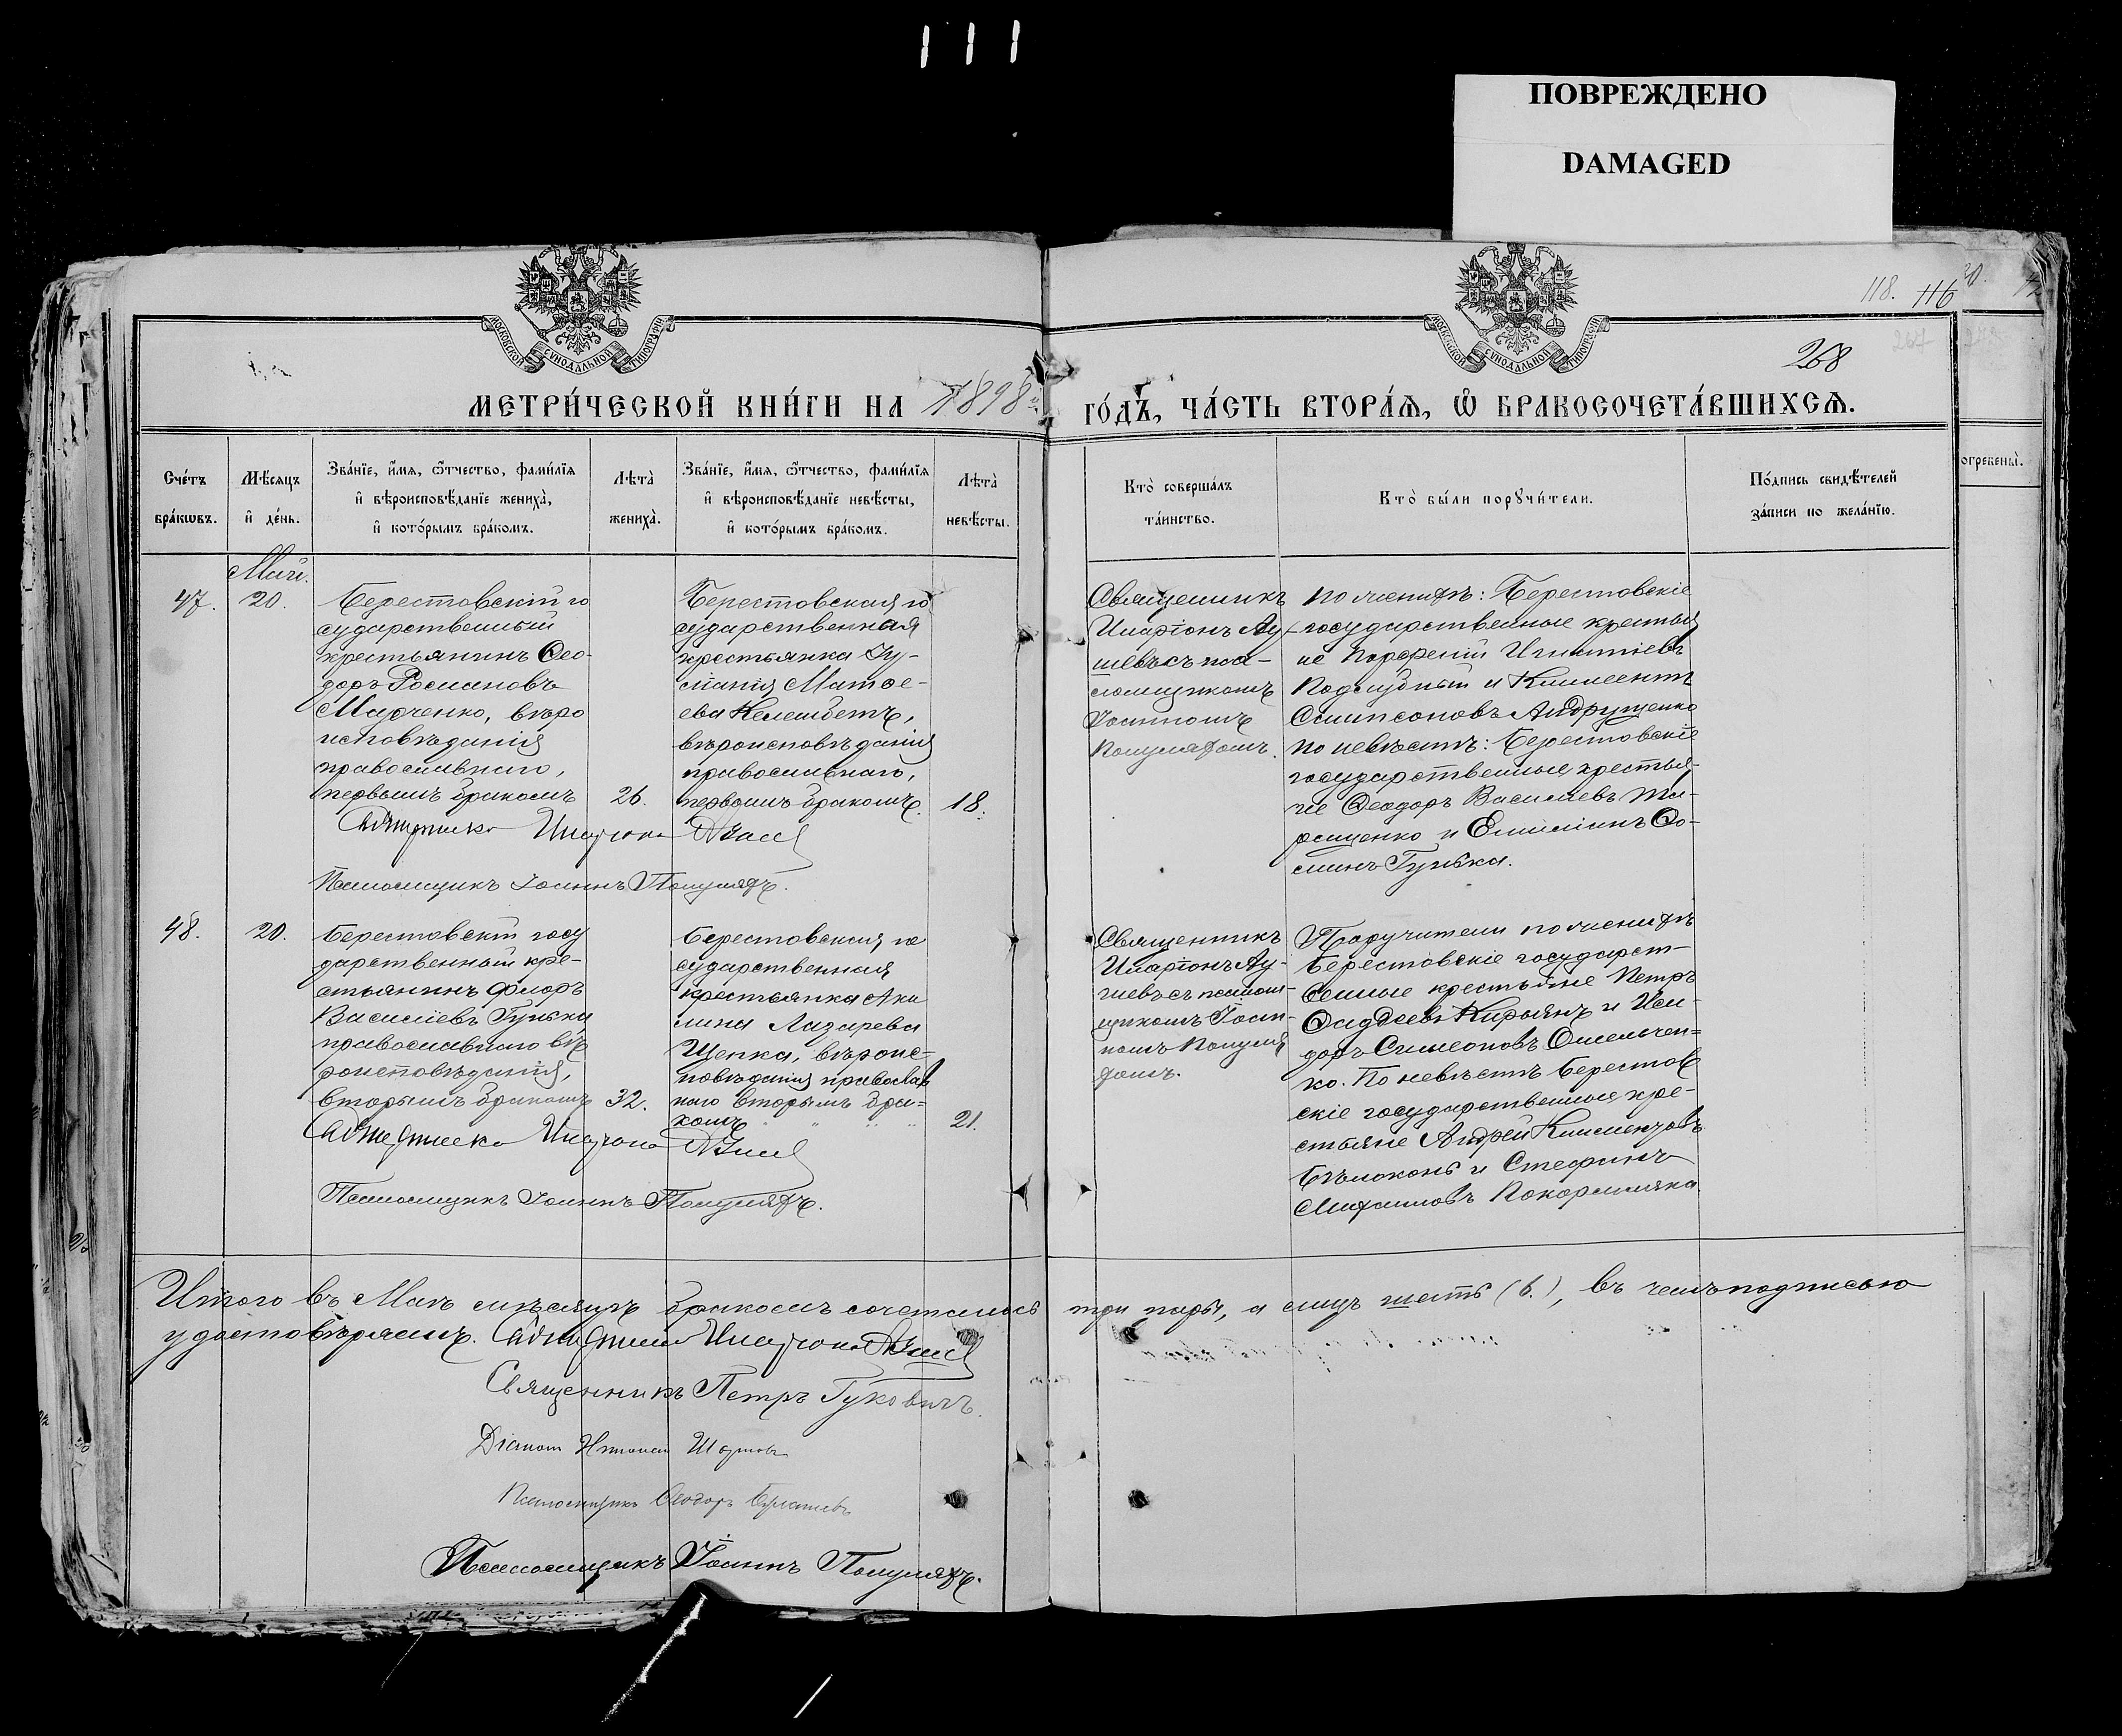 ПОВРЕЖДЕНО
DAMAGED
118. 116
268
МОСКОВСКОЙ СѴНОДАЛЬНОЙ ТИПОГРАФІИ
МОСКОВСКОЙ СѴНОДАЛЬНОЙ ТИПОГРАФІИ
МЕТРИ́ЧЕСКОЙ КНИ́ГИ НА 1898 й
ГО́ДЪ, ЧА́СТЬ ВТОРА́Ѧ, Ѽ БРАКОСОЧЕТА́ВШИХСѦ.
Сче́тъ бра́кѡвъ.
Мѣ́сяцъ и҆ де́нь.
Зва́нїе, и҆́мя, ѻ҆́тчество, фами́лїя
и҆ вѣроисповѣ́данїе жениха̀,
и҆ кото́рымъ бра́комъ.
Лѣта̀ жениха̀.
Зва́нїе, и҆́мя, ѻ҆́тчество, фами́лїя
и҆ вѣроисповѣ́данїе невѣ́сты,
и҆ кото́рымъ бра́комъ.
Лѣта̀ невѣ́сты.
Кто̀ соверша́лъ
та́инство.
Кто̀ бы́ли порꙋчи́тели.
По́дпись свидѣ́телей
за́писи по жела́нїю.
огребены̀.
Май.
47.
20.
Берестовскій го
сударственный
крестьянинъ Ѳео-
доръ Романовъ
Марченко, вѣро
исповѣданія
православнаго,
первымъ бракомъ
26.
Берестовская го
сударственная
крестьянка Іу-
ліанія Матѳе-
ева Келембетъ,
вѣроисповѣданія
православнаго,
первымъ бракомъ.
18.
Священникъ
Иларіонъ
съ пса-
ломщикомъ
Іоанномъ
Полуляхомъ.
по женихѣ: Берестовскіе
государственные крестья
не Порфирій Игнатіевъ
Поддубный и Климентъ
Симпсоновъ Андрущенко
по невѣстѣ: Берестовскіе
государственные крестья-
не Ѳеодоръ Василіевъ Та-
ращенко и Емиліанъ Ѳо-
минъ Гунька.
Священникъ Иларіонъ
Псаломщикъ Іоаннъ Полуляхъ.
48.
20.
Берестовскій госу
дарственный кре-
стьянинъ Флоръ
Василіевъ Гунька
православнаго вѣ
роисповѣданія,
вторымъ бракомъ
32.
Берестовская го
сударственная
крестьянка Аки
лина Лазарева
Щепка, вѣроис-
повѣданія православ
наго вторымъ бра=
комъ
21.
Священникъ
Иларіонъ
съ псалом-
щикомъ Іоан-
номъ Полуля
хомъ.
Поручители по женихѣ
Берестовскіе государст-
венные крестьяне Петръ
Ѳаддеевъ Кирьянъ и Иси-
доръ Симеоновъ Омельчен=
ко. По невѣстѣ Берестов
скіе государственные кре-
стьяне Андрей Климентовъ
Бѣлоконь и Стефанъ
Михаиловъ Покормляка
Священника Иларіона
Псаломщикъ Іоаннъ Полуляхъ.
Итого въ Маѣ мѣсяцѣ бракомъ сочеталось три пары, а лицъ шесть (6.), въ чемъ подписью
удостовѣряемъ. Священникъ Иларіонъ
Священникъ Петръ Гуковичъ.
Діаконъ
Псаломщикъ Ѳеодоръ
Псаломщикъ Іоаннъ Полуляхъ.